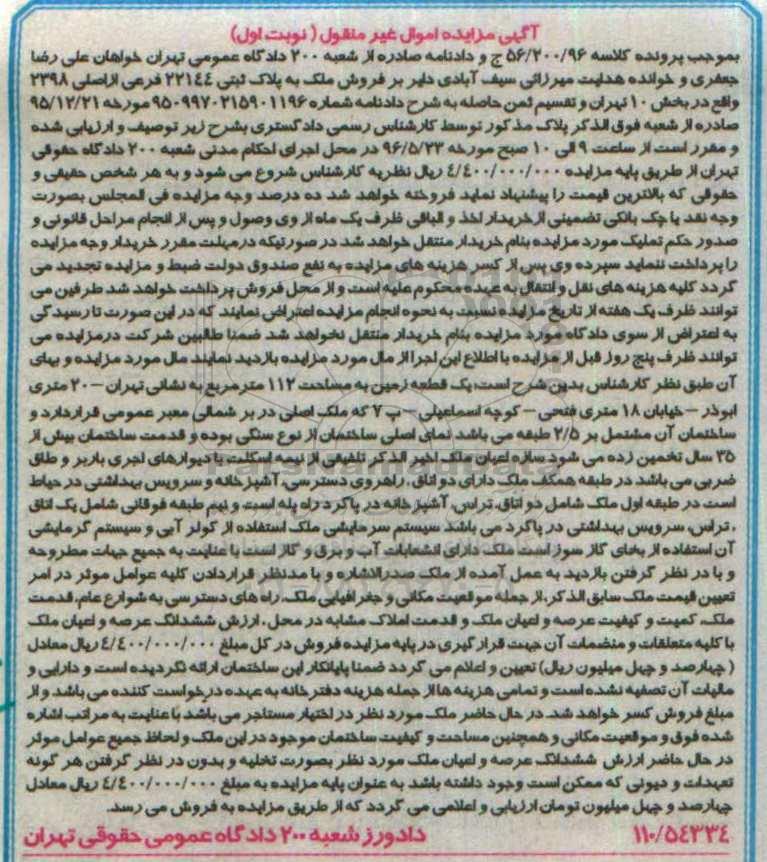 آگهی مزایده اموال غیر منقول ( نوبت اول)
بموجب پرونده کلاسه ۵۶/۲۰۰/۹۶ ج و دادنامه صادره از شعبه ۲۰۰ دادگاه عمومی تهران خواهان علی رضا
جعفری و خوانده هدایت میرزائی سیف آبادی دایر بر فروش ملک به پلاک ثبتی ۲۲۱۴۴ فرعی ازاصلی ۲۳۹۸
واقع در بخش ۱۰ تهران و تقسیم ثمن حاصله به شرح دادنامه شماره ۹۵۰۹۹۷۰۲۱۵۹۰۱۱۹۶ مورخه ۹۵/۱۲/۲۱
صادره از شعبه فوق الذکر پلاک مذکور توسط کارشناس رسمی دادگستری بشرح زیر توصیف و ارزیابی شده
و مقرر است از ساعت ۹ الی ۱۰ صبح مورخه ۹۶/۵/۲۳ در محل اجرای احکام مدنی شعبه ۲۰۰ دادگاه حقوقی
تهران از طریق پایه مزایده ۴/۴۰۰/۰۰۰/۰۰۰ ریال نظریه کارشناس شروع می شود و به هر شخص حقیقی و
حقوقی که بالاترین قیمت را پیشنهاد نماید فروخته خواهد شد ده درصد وجه مزایده فی المجلس بصورت
وجه نقد یا چک بانکی تضمینی ازخریدار اخذ و الباقی ظرف یک ماه از وی وصول و پس از انجام مراحل قانونی و
صدور حکم تملیک مورد مزایده بنام خریدار منتقل خواهد شد در صورتیکه درمهلت مقرر خریدار وجه مزایده
را پرداخت ننماید سپرده وی پس از کسر هزینه های مزایده به نفع صندوق دولت ضبط و مزایده تجدید می
گردد کلیه هزینه های نقل و انتقال به عهده محکوم علیه است و از محل فروش پرداخت خواهد شد طرفین می
توانند ظرف یک هفته از تاریخ مزایده نسبت به نحوه انجام مزایده اعتراض نمایند که در این صورت تا رسیدگی
به اعتراض از سوی دادگاه مورد مزایده بنام خریدار منتقل نخواهد شد ضمنا طالبین شرکت درمزایده می
توانند ظرف پنج روز قبل از مزایده با اطلاع این اجرا از مال مورد مزایده بازدید نمایند مال مورد مزایده و بهای
آن طبق نظر کارشناس بدین شرح است، یک قطعه زمین به مساحت ۱۱۲ مترمربع به نشانی تهران – ۲۰ متری
ابوذر – خیابان ۱۸ متری فتحی – کوچه اسماعیلی – پ ۷ که ملک اصلی در بر شمالی معبر عمومی قراردارد و
ساختمان آن مشتمل بر ۲/۵ طبقه می باشد نمای اصلی ساختمان از نوع سنگی بوده و قدمت ساختمان بیش از
۳۵ سال تخمین زده می شود سازه اعیان ملک اخیر الذکر تلفیقی از نیمه اسکلت با دیوارهای اجری باربر و طاق
ضربی می باشد در طبقه همکف ملک دارای دو اتاق، راهروی دسترسی، آشپزخانه و سرویس بهداشتی در حیاط
است در طبقه اول ملک شامل دو اتاق، تراس، آشپزخانه در پاگرد راه پله است و نیم طبقه فوقانی شامل یک اتاق
، تراس، سرویس بهداشتی در پاگرد می باشد سیستم سرمایشی ملک استفاده از کولر آبی و سیستم گرمایشی
آن استفاده از بخای گاز سوز است ملک دارای انشعابات آب و برق و گاز است با عنایت به جمیع جهات مطروحه
و با در نظر گرفتن بازدید به عمل آمده از ملک صدرالاشاره و با مدنظر قراردادن کلیه عوامل موثر در امر
تعیین قیمت ملک سابق الذکر، از جمله موقعیت مکانی و جغرافیایی ملک، راه های دسترسی به شوارع عام، قدمت
ملک، کمیت و کیفیت عرصه و اعیان ملک و قدمت املاک مشابه در محل ، ارزش ششدانگ عرصه و اعیان ملک
با کلیه متعلقات و منضمات آن جهت قرار گیری در پایه مزایده فروش در کل مبلغ ۴/۴۰۰/۰۰۰/۰۰۰ ریال معادل
( چهارصد و چهل میلیون ریال) تعیین و اعلام می گردد ضمنا پایانکار این ساختمان ارائه نگردیده است و دارایی و
مالیات آن تصفیه نشده است و تمامی هزینه ها از جمله هزینه دفترخانه به عهده درخواست کننده می باشد و از
مبلغ فروش کسر خواهد شد. در حال حاضر ملک مورد نظر در اختیار مستاجر می باشد با عنایت به مراتب اشاره
شده فوق و موقعیت مکانی و همچنین مساحت و کیفیت ساختمان موجود در این ملک و لحاظ جمیع عوامل موثر
در حال حاضر ارزش ششدانگ عرصه و اعیان ملک مورد نظر بصورت تخلیه و بدون در نظر گرفتن هر گونه
تعهدات و دیونی که ممکن است وجود داشته باشد به عنوان پایه مزایده به مبلغ ۴/۴۰۰/۰۰۰/۰۰۰ ریال معادل
چهارصد و چهل میلیون تومان ارزیابی و اعلامی می گردد که از طریق مزایده به فروش می رسد.
۱۱۰/۵۴۳۳۴ دادورز شعبه ۲۰۰ دادگاه عمومی حقوقی تهران